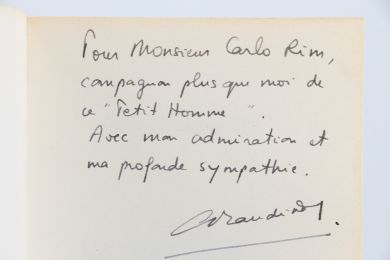 Pour Monsieur Carlo Rim,
compagnon plus que moi de
ce "Petit Homme".
Avec mon admiration et
ma profonde sympathie.